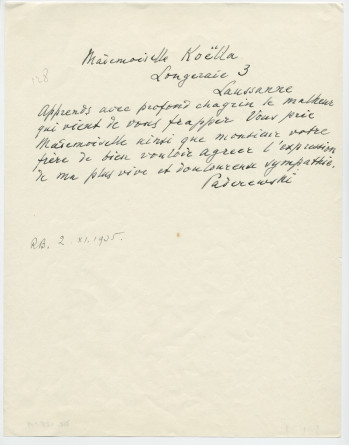 Mademoiselle Koëlla
Longeraie 3
Laussanne
Apprends avec profond chagrin le malheur
qui vient de vous frapper Vous prie
Mademoiselle ainsi que monsieur votre
frère de bien vouloir agréer l'expression
de ma plus vive et douloureuse sympathie.
Paderewski
R.B. 2. XI. 1935.